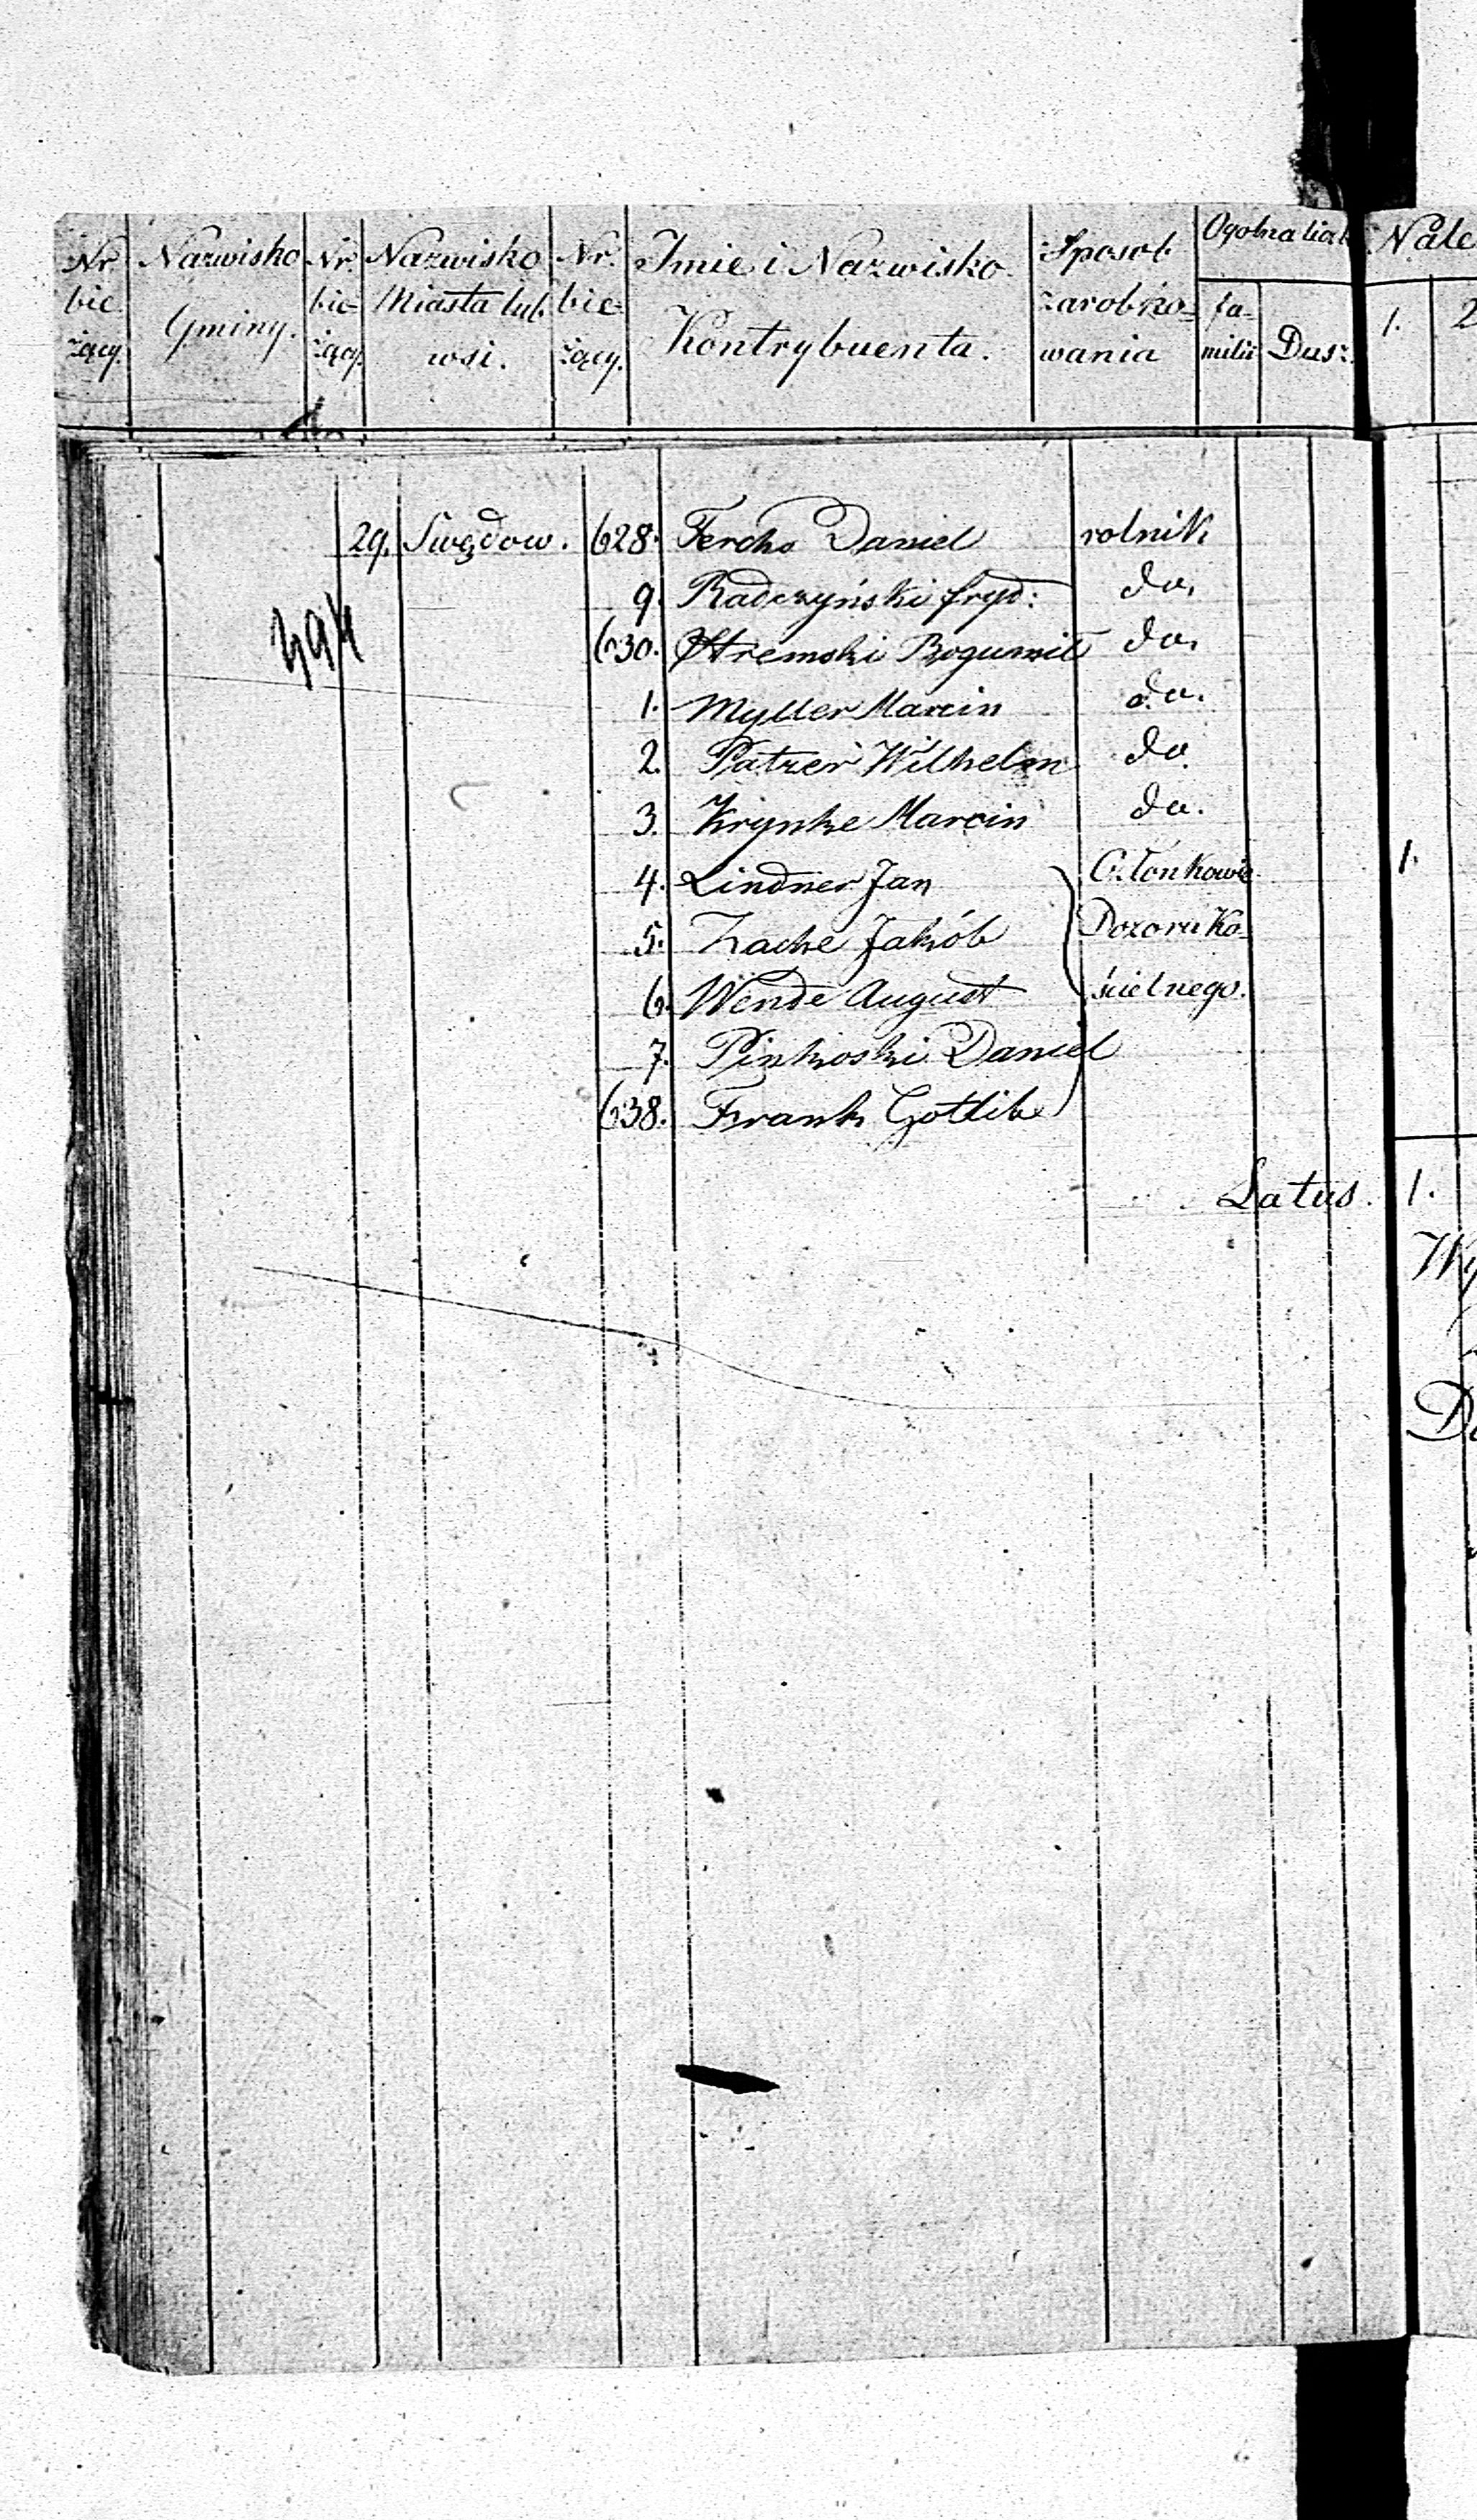 Nr. bie- żący.
Nazwisko Gminy.
Nr. bie- żący.
Nazwisko Miasta lub wsi.
Nr. bie- żący.
Imie i Nazwisko Kontrybuenta.
Sposob zarobko- wania
Ogolna liczb
fa- milii
Dusz.
Nale
1.
2
29. Swędow. 628. Fercho Daniel rolnik
9. Radczyński fryd: do.
630. Stremski Bogumił do.
1. Myller Marcin do.
2. Patzer Wilhelm do.
3. Krynke Marcin do.
4. Lindner Jan Członkowie 1.
5. Zache Jakób Dozoru Ko-
6. Wende August ścielnego.
7. Pinkoski Daniel
638. Frank Gotlib
Latus. 1.